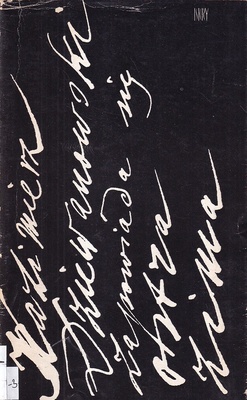 ISKRY
Kazimierz
Dziewanowski
zapowiada się
ostra
zima